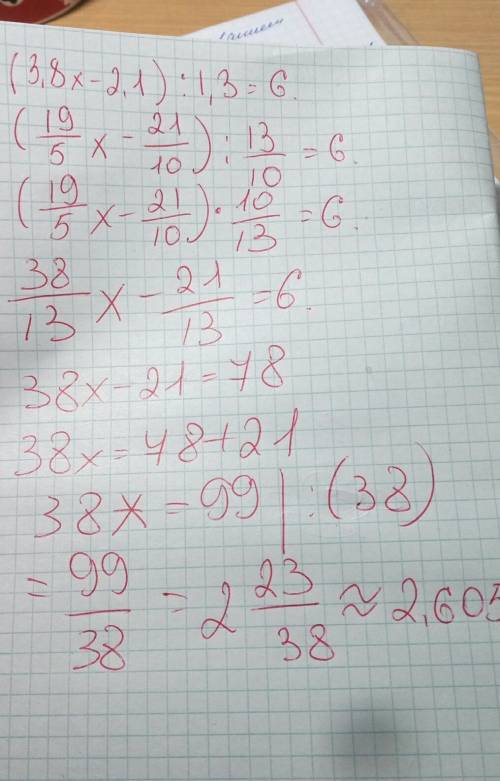 (3,8x-2,1):1,3=6.
(19/5 x - 21/10) : 13/10 = 6.
(19/5 x - 21/10) · 10/13 = 6.
38/13 x - 21/13 = 6.
38x-21=78
38x=78+21
38x=99 | :(38)
= 99/38 = 2 23/38 ≈ 2,605